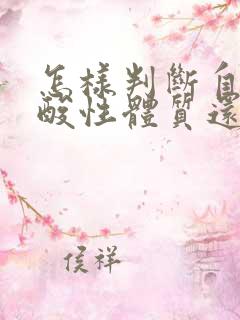 怎樣判斷自
酸性體質還
侯祥